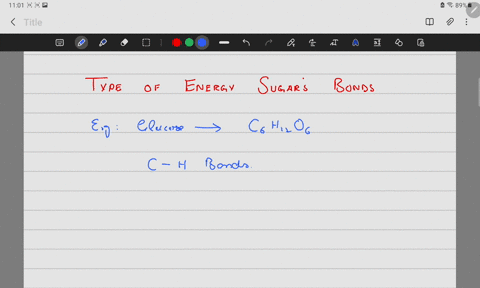 11:01
89%
Title
TYPE OF ENERGY SUGAR'S BONDS
Eg: Glucose → C6H12O6
C - H Bonds